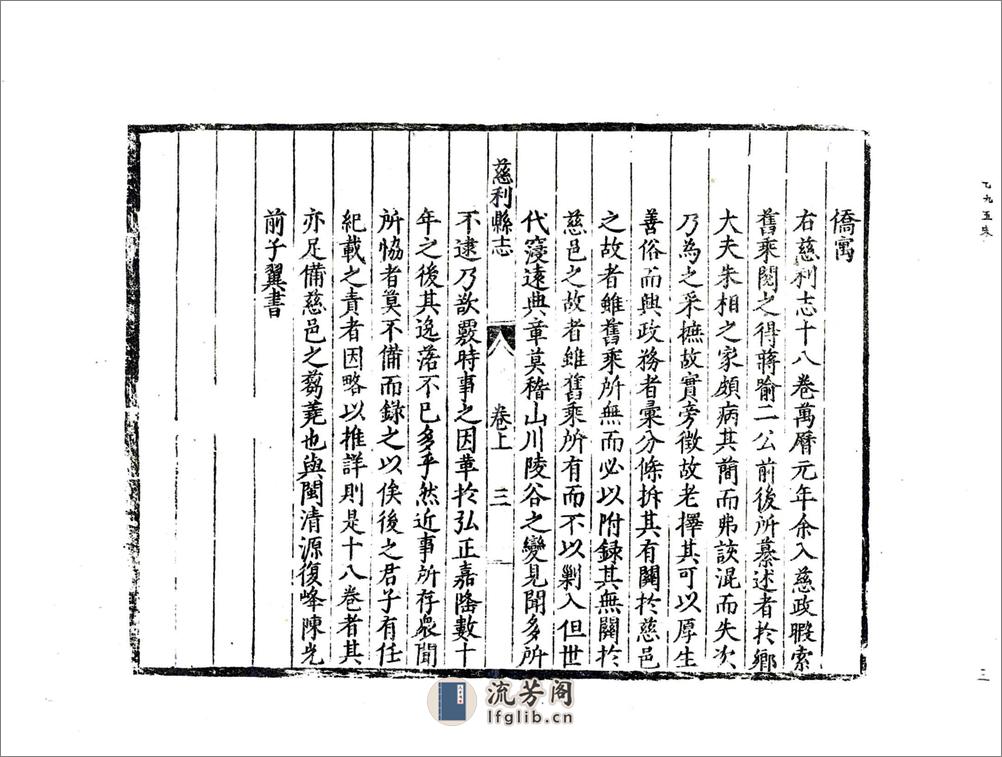 僑寓
右慈利志十八卷萬曆元年余入慈政暇索
舊乘閱之得蔣喻二公前後所纂述者於鄉
大夫朱相之家頗病其蕳而弗詼混而失次
乃為之采摭故實旁徵故老擇其可以厚生
善俗而興政務者彙分條拆其有關於慈邑
之故者雖舊乘所無而必以附録其無關於
慈邑之故者雖舊乘所有而不以剿入但世
代寖遠典章莫稽山川陵谷之變見聞多所
慈利縣志
卷上
三
不逮乃欲覈時事之因革於弘正嘉隆數十
年之後其逸落不已多乎然近事所存衆聞
所恊者莫不備而録之以俟後之君子有任
紀載之責者因略以推詳則是十八卷者其
亦足備慈邑之蒭蕘也與閩清源復峰陳光
前子翼書
流芳阁
lfglib.cn